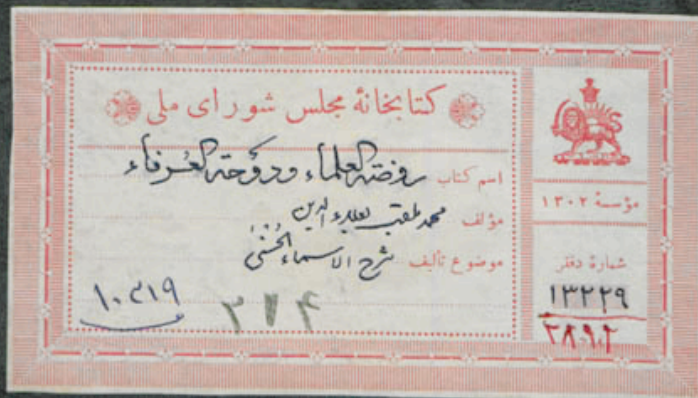 کتابخانهٔ مجلس شورای ملی
اسم کتاب روضة العلماء ودوحة العرفاء
مؤلف محمد ملقب بعلاء الدین
موضوع تألیف شرح الاسماء الحسنی
۱۰۳۱۹
۲۷۴
مؤسسهٔ ۱۳۰۲
شمارهٔ دفتر
۱۳۲۲۹
۲۸۹۰۲